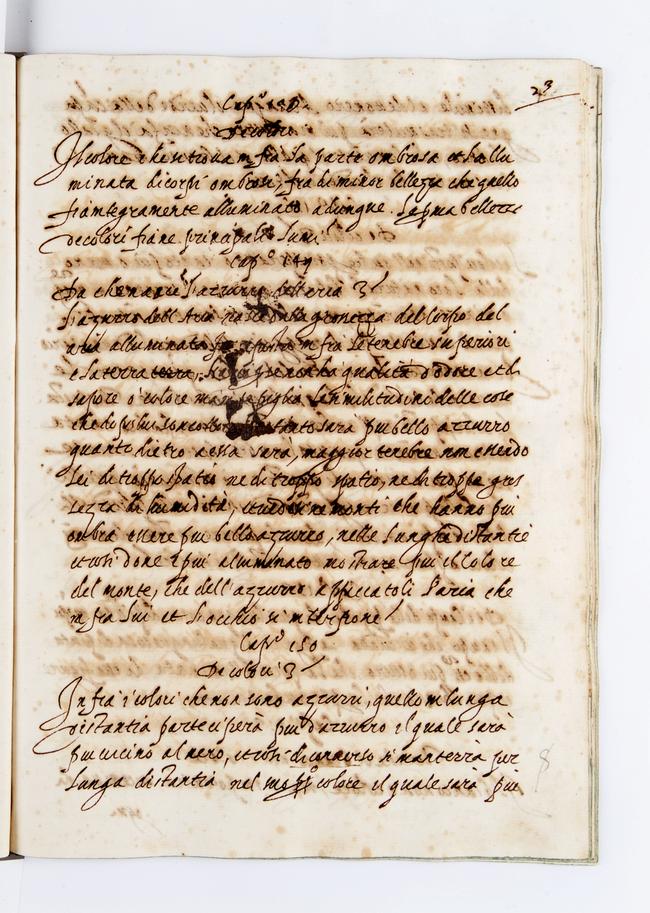 23
Cap.º 148
De colori
Il colore che si trova in fra la parte ombrosa et l'allu
minata di corpi ombrosi, fia di minor bellezza che quello
fia integramente alluminato adunque. la prima bellezza
de colori fia ne principali lumi
Cap.º 149
Da che nasce l'azzurro dell'aria 3
L'azzurro dell'Aria nasce dalla grossezza del Corpo del
aria alluminata in fra le tenebre superiori
e la terra, l'aria qualità d'odore et di
sapore o colore ma in se piglia le similitudini delle cose
che doppo lui son collocate tanto sarà piu bello azzurro
quanto dietro a essa sarà, maggior tenebre non essendo
lei di troppo spatio ne di troppo spatio, ne di troppa gros
sezza di humidità, et vedesi ne monti che hanno piu
ombra essere piu bello azzurro, nelle lunghe distantie
et cosi dove è piu aluminato mostrare piu il Colore
del monte, che dell'azzurro appiccatoli l'aria che
in fra lui et l'occhio si interpone
Cap.º 150
De colori 3
In fra i colori che non sono azzurri, quello in lunga
distantia parteciperà piu d'azzurro il quale sarà
piu vicino al nero, et cosi di converso si manterrà per
lunga distantia nel colore il quale sarà piu